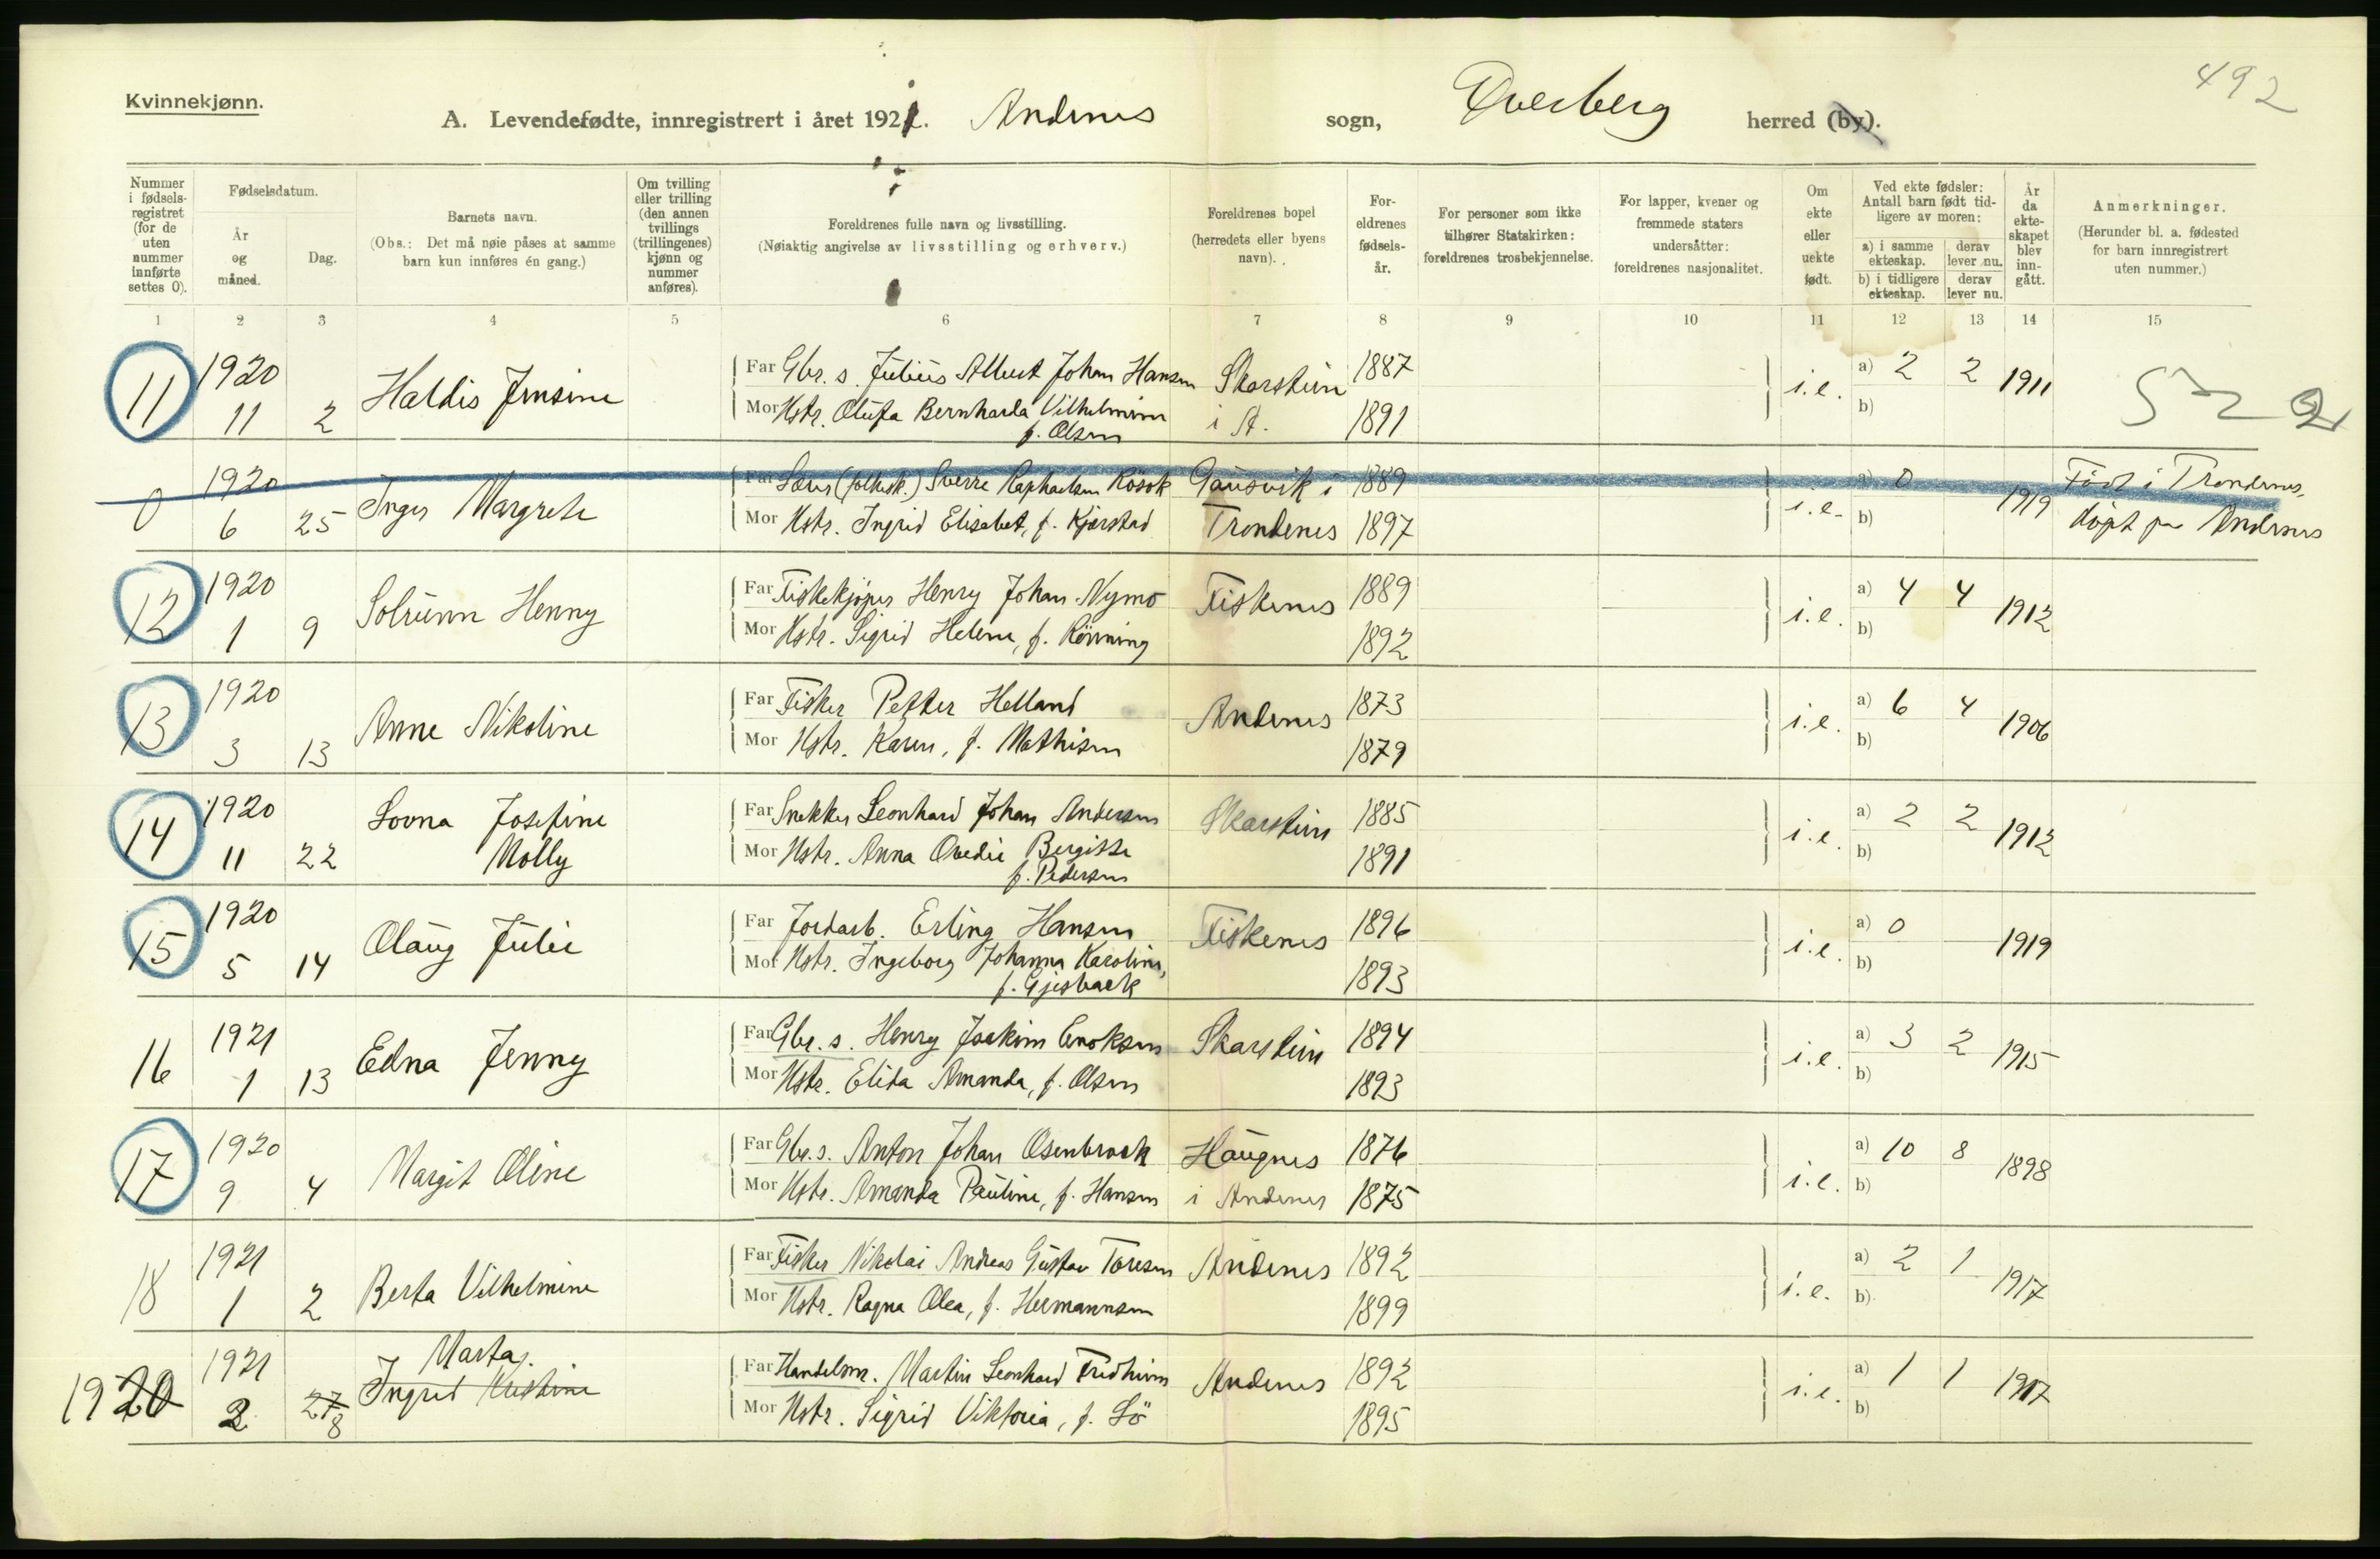 492
Kvinnekjønn.
A. Levendefødte, innregistrert i året 1921. Andenes sogn, Dverberg herred (by).
Nummer i fødselsregistret (for de uten nummer innførte settes 0).
Fødselsdatum.
År og måned.
Dag.
Barnets navn.
(Obs.: Det må nøie påses at samme barn kun innføres én gang.)
Om tvilling eller trilling (den annen tvillings (trillingenes) kjønn og nummer anføres).
Foreldrenes fulle navn og livsstilling.
(Nøiaktig angivelse av livsstilling og erhverv.)
Foreldrenes bopel (herredets eller byens navn).
Foreldrenes fødselsår.
For personer som ikke tilhører Statskirken: foreldrenes trosbekjennelse.
For lapper, kvener og fremmede staters undersåtter: foreldrenes nasjonalitet.
Om ekte eller uekte født.
Ved ekte fødsler: Antall barn født tidligere av moren:
a) i samme ekteskap. derav lever nu.
b) i tidligere ekteskap. derav lever nu.
År da ekteskapet blev inngått.
Anmerkninger.
(Herunder bl. a. fødested for barn innregistrert uten nummer.)
1 2 3 4 5 6 7 8 9 10 11 12 13 14 15
11 1920 11 2 Haldis Jensine
Far Gbr. s. Julius Albert Johan Hansen Skarstein 1887
Mor Hstr. Olufa Bernharda Vilhelmine f. Olsen i A. 1891
i.e. a) 2 2 b) 1911
0 1920 6 25 Inger Margrete
Far Lærer (folkesk.) Sverre Raphaelsen Rösok Gausvik i 1889
Mor Hstr. Ingrid Elisabet, f. Kjærstad Trondenes 1897
i.e. a) 0 b) 1919 Född i Trondenes, döpt på Andenes
12 1920 1 9 Solrunn Henny
Far Fiskekjøper Henry Johan Nymo Fiskenes 1889
Mor Hstr. Sigrid Helene, f. Rönning 1892
i.e. a) 4 4 b) 1912
13 1920 3 13 Anne Nikoline
Far Fisker Petter Helland Andenes 1873
Mor Hstr. Karen, f. Mathisen 1879
i.e. a) 6 4 b) 1906
14 1920 11 22 Lovna Josefine Molly
Far Snekker Leonhard Johan Andersen Skarstein 1885
Mor Hstr. Anna Ovedie Bergitte f. Pedersen 1891
i.e. a) 2 2 b) 1912
15 1920 5 14 Olaug Julie
Far Jordarb. Erling Hansen Fiskenes 1896
Mor Hstr. Ingeborg Johanna Karoline, f. Gjesbaek 1893
i.e. a) 0 b) 1919
16 1921 1 13 Edna Jenny
Far Gbr. s. Henry Joakim Enoksen Skarstein 1894
Mor Hstr. Elida Amanda, f. Olsen 1893
i.e. a) 3 2 b) 1915
17 1920 9 4 Margit Oline
Far Gbr. s. Anton Johan Osenbroch Haugnes 1876
Mor Hstr. Amanda Pauline, f. Hansen i Andenes 1875
i.e. a) 10 8 b) 1898
18 1921 1 2 Berta Vilhelmine
Far Fisker Nikolai Andreas Gustav Toresen Andenes 1892
Mor Hstr. Ragna Olea, f. Hermannsen 1899
i.e. a) 2 1 b) 1917
19 20 1921 2 27 8 Marta Ingrid Kristine
Far Handelsm. Martin Leonhard Fridheim Andenes 1892
Mor Hstr. Sigrid Viktoria, f. Lö 1895
i.e. a) 1 1 b) 1917